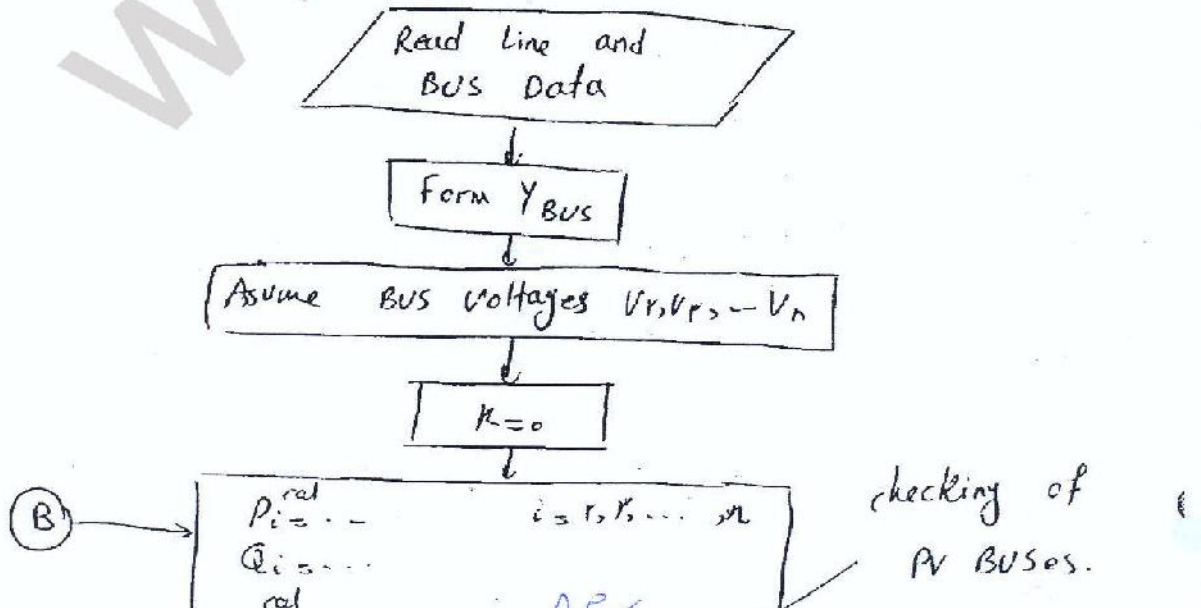 Read Line and
BUS Data
Form Y BUS
Asume BUS voltages V۲,V۳,--V n
K=0
B
P i cal = . . - i = ۲, ۳, ... , n
Q i = . . .
checking of
PV BUSes.
cal
ΔP